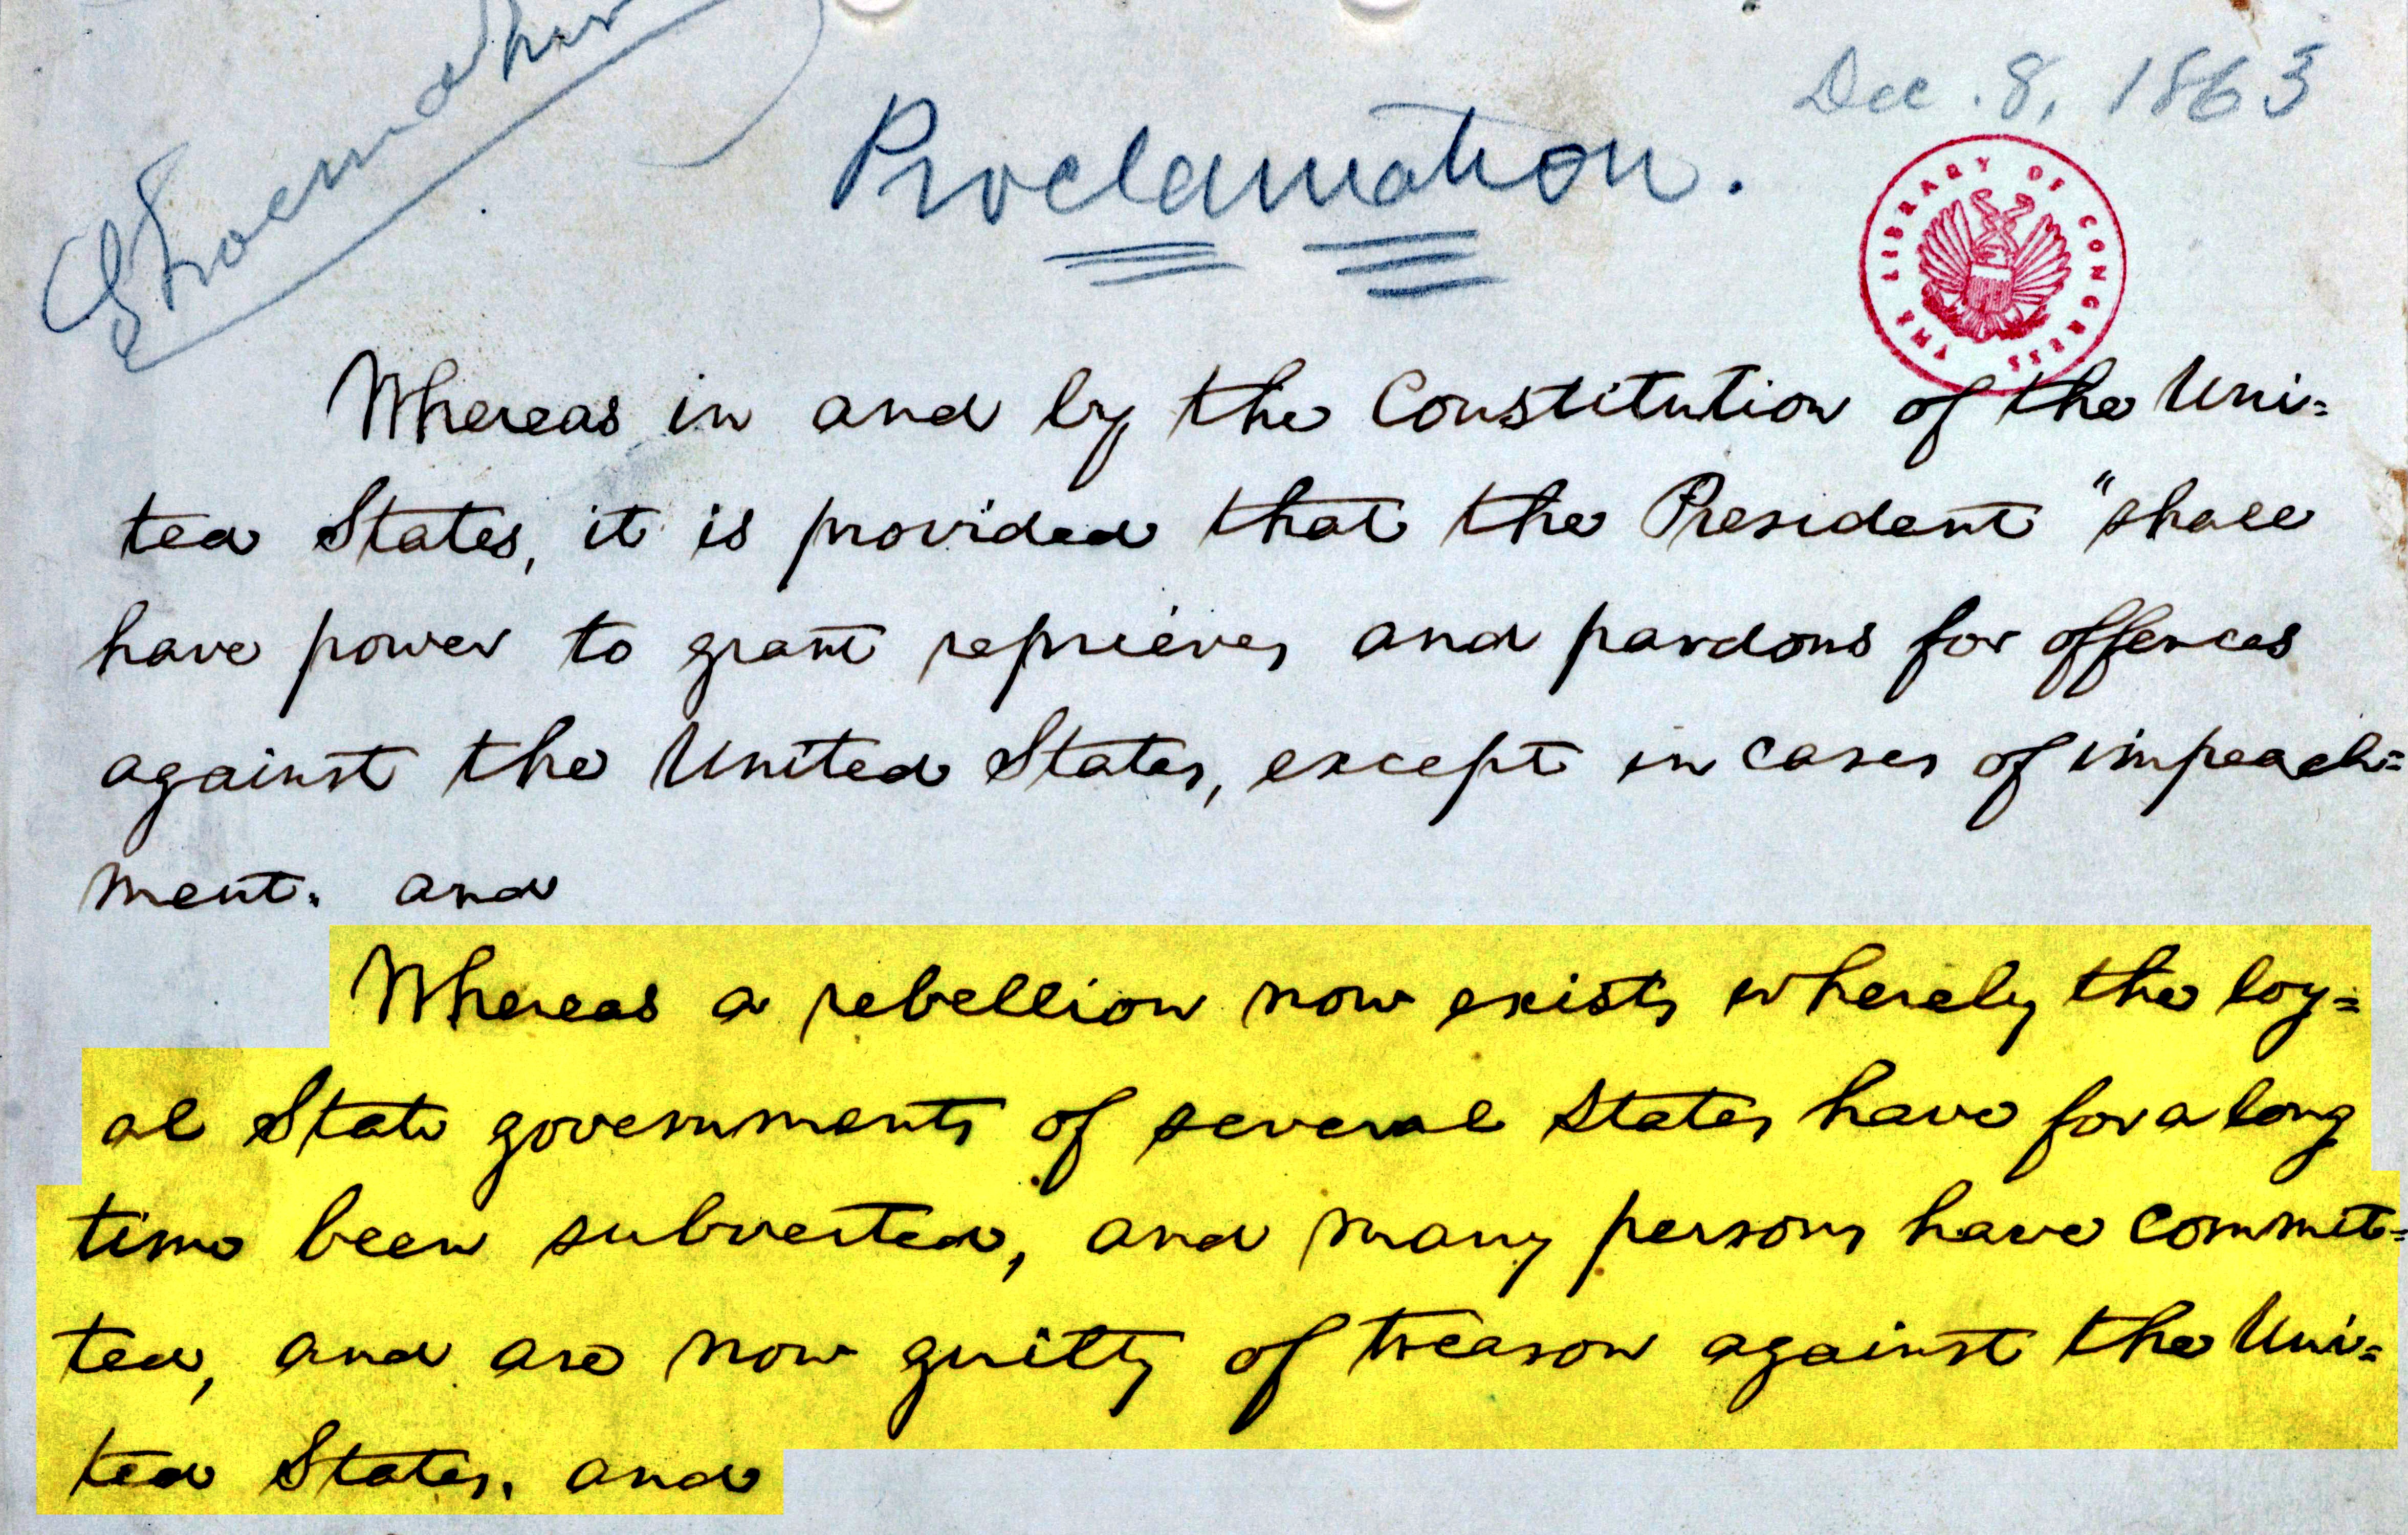 Shoemaker
Dec. 8, 1863
Proclamation.
THE LIBRARY OF CONGRESS
Whereas in and by the Constitution of the Uni=
ted States, it is provided that the President "shall
have power to grant reprieves and pardons for offences
against the United States, except in cases of impeach=
ment. and
Whereas a rebellion now exists whereby the loy=
al State governments of several States have for a long
time been subverted, and many persons have commit=
ted, and are now guilty of treason against the Uni=
ted States. and